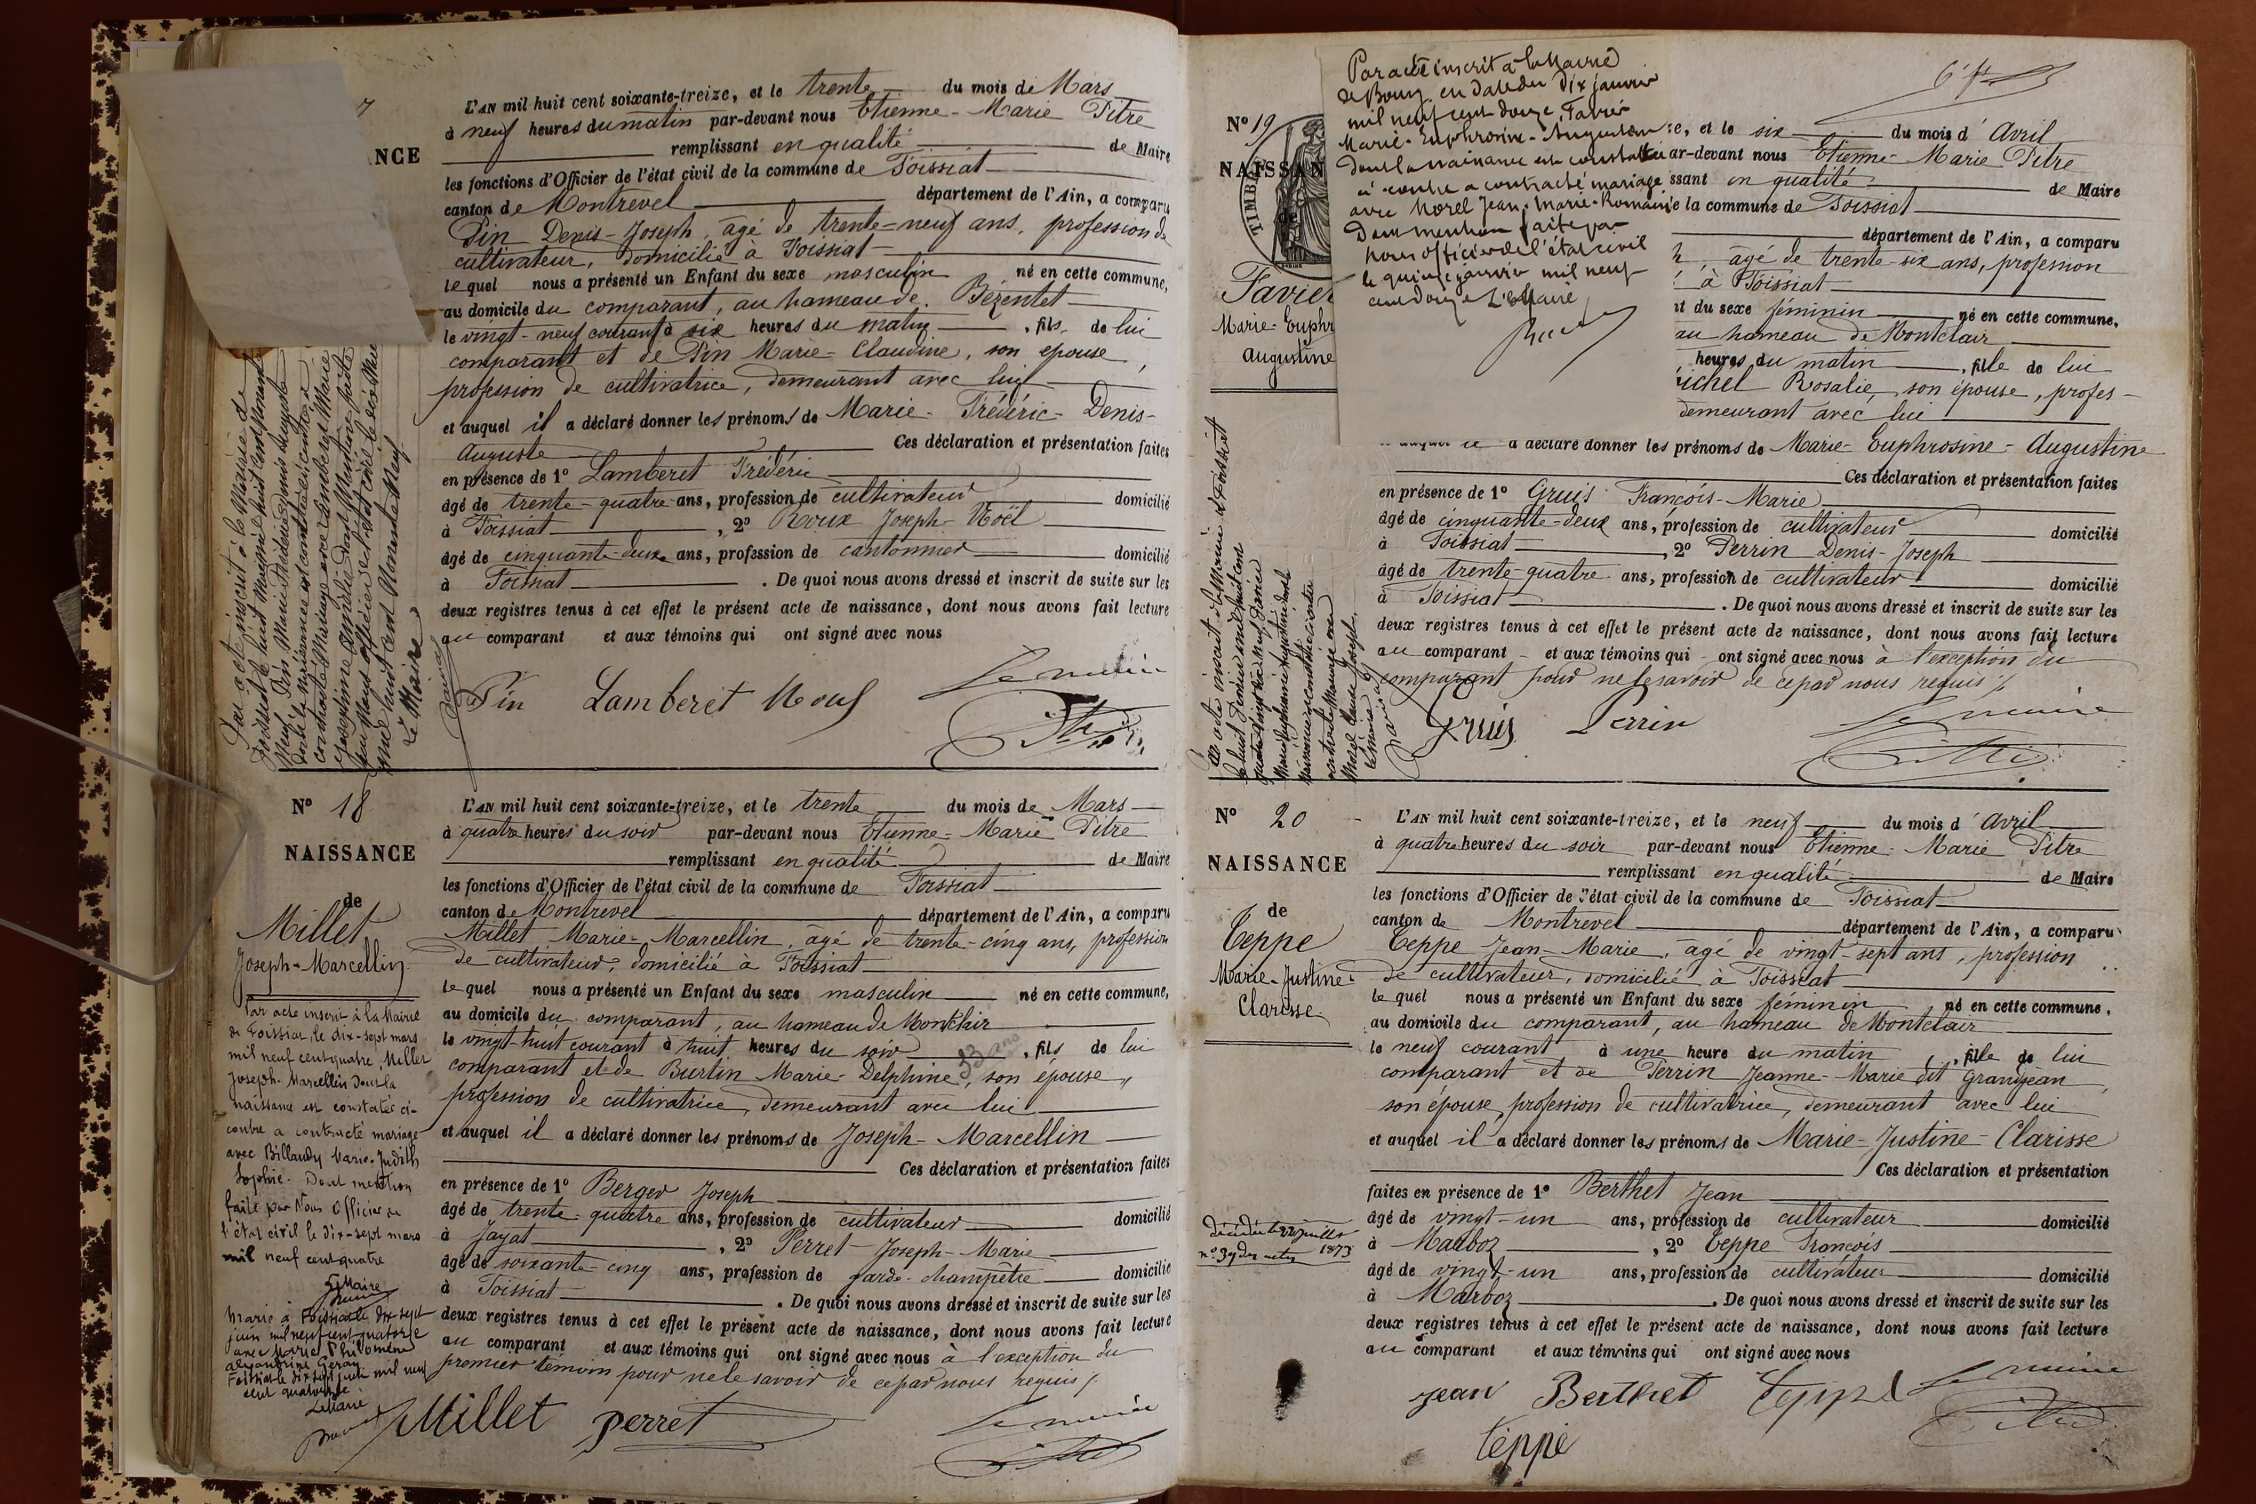 NCE
L'AN mil huit cent soixante-treize, et le trente du mois de Mars
à neuf heures du matin par-devant nous Etienne-Marie Pitre
remplissant en qualité de Maire
les fonctions d'Officier de l'état civil de la commune de Foissiat
canton de Montrevel département de l'Ain, a comparu
Pin Denis-Joseph, âgé de trente-neuf ans, profession de
cultivateur, domicilié à Foissiat
lequel nous a présenté un Enfant du sexe masculin né en cette commune,
au domicile du comparant, au hameau de Bézentet
le vingt-neuf courant à six heures du matin, fils de lui
comparant et de Pin Marie-Claudine, son epouse,
profession de cultivatrice, demeurant avec lui
et auquel il a déclaré donner les prénoms de Marie-Frédéric-Denis-
Auguste Ces déclaration et présentation faites
en présence de 1° Lamberet Frédéric
âgé de trente-quatre ans, profession de cultivateur domicilié
à Foissiat, 2° Roux Joseph-Noël
âgé de cinquante-deux ans, profession de cantonnier domicilié
à Foissiat. De quoi nous avons dressé et inscrit de suite sur les
deux registres tenus à cet effet le présent acte de naissance, dont nous avons fait lecture
au comparant et aux témoins qui ont signé avec nous
Pin Lamberet Roux Le maire
Pitre
Par acte inscrit à la Mairie de
Foissiat le huit
Neuf Pin Marie Frédéric Denis Auguste
dont la naissance est constatée ci-contre a
contracté Mariage avec
Joséphine dont Mention faite
par Nous officier de l'état civil le
mil huit cent Nonante Neuf
Le Maire
N° 18
NAISSANCE
de
Millet
Joseph-Marcellin
Par acte inscrit à la Mairie
de Foissiat, le dix-sept mars
mil neuf cent quatre, Millet
Joseph-Marcellin dont la
naissance est constatée ci-
contre a contracté mariage
avec Billaudy Marie-Judith
Sophie. Dont mention
faite par Nous Officier de
l'état civil le dix-sept mars
mil neuf cent quatre
Le Maire
Marié à Foissiat le dix sept
juin mil neuf cent quatorze
avec Marie Philomène
Alexandrine Geray
Foissiat le dix sept juin mil neuf
cent quatorze
Le Maire
L'AN mil huit cent soixante-treize, et le trente du mois de Mars
à quatre heures du soir par-devant nous Etienne-Marie Pitre
remplissant en qualité de Maire
les fonctions d'Officier de l'état civil de la commune de Foissiat
canton de Montrevel département de l'Ain, a comparu
Millet Marie-Marcellin, âgé de trente-cinq ans, profession
de cultivateur, domicilié à Foissiat
lequel nous a présenté un Enfant du sexe masculin né en cette commune,
au domicile du comparant, au hameau de Montclair
le vingt-huit courant à huit heures du soir, fils de lui
comparant et de Burtin Marie-Delphine, 33 ans son epouse,
profession de cultivatrice, demeurant avec lui
et auquel il a déclaré donner les prénoms de Joseph-Marcellin
Ces déclaration et présentation faites
en présence de 1° Berger Joseph
âgé de trente-quatre ans, profession de cultivateur domicilié
à Jayat, 2° Perret Joseph-Marie
âgé de soixante-cinq ans, profession de garde-champêtre domicilié
à Foissiat. De quoi nous avons dressé et inscrit de suite sur les
deux registres tenus à cet effet le présent acte de naissance, dont nous avons fait lecture
au comparant et aux témoins qui ont signé avec nous à l'exception du
premier témoin pour ne le savoir de ce par nous requis /.
Millet Perret Le maire
Pitre
6e ft
N° 19
NAISSAN
TIMBR
de
Favier
Marie-Euphr
Augustine
Par acte inscrit à la Mairie
de Bourg en date du dix janvier
mil neuf cent douze, Favier
Marie-Euphrosine-Augustine
dont la naissance est constatée
ci-contre a contracté mariage
avec Morel Jean-Marie-Romain
Dont mention faite par
nous officier de l'état civil
le quinze janvier mil neuf
cent douze Le Maire
ze, et le six du mois d'Avril
ar-devant nous Etienne-Marie Pitre
ssant en qualité de Maire
e la commune de Foissiat
département de l'Ain, a comparu
âgé de trente-six ans, profession
à Foissiat
nt du sexe féminin né en cette commune,
au hameau de Montclair
heures du matin, fille de lui
ichel Rosalie, son épouse, profes-
demeurant avec lui
et auquel il a déclaré donner les prénoms de Marie-Euphrosine-Augustine
Ces déclaration et présentation faites
en présence de 1° Gruis François-Marie
âgé de cinquante-deux ans, profession de cultivateur domicilié
à Foissiat, 2° Perrin Denis-Joseph
âgé de trente-quatre ans, profession de cultivateur domicilié
à Foissiat. De quoi nous avons dressé et inscrit de suite sur les
deux registres tenus à cet effet le présent acte de naissance, dont nous avons fait lecture
au comparant et aux témoins qui ont signé avec nous à l'exception du
comparant pour ne le savoir de ce par nous requis /.
Gruis Perrin Le maire
Pitre
Par acte inscrit à la Mairie de Foissiat
le huit Février mil huit cent
quatre vingt dix neuf Favier
Marie Euphrosine Augustine dont
la naissance est constatée ci-contre
a contracté Mariage avec
Morel Claude Joseph
Le Maire
N° 20
NAISSANCE
de
Teppe
Marie-Justine-
Clarisse
décédée le 22 juillet
n° 39 des actes 1873
L'AN mil huit cent soixante-treize, et le neuf du mois d'Avril
à quatre heures du soir par-devant nous Etienne-Marie Pitre
remplissant en qualité de Maire
les fonctions d'Officier de l'état civil de la commune de Foissiat
canton de Montrevel département de l'Ain, a comparu
Teppe Jean-Marie, âgé de vingt-sept ans, profession
de cultivateur, domicilié à Foissiat
lequel nous a présenté un Enfant du sexe féminin né en cette commune,
au domicile du comparant, au hameau de Montclair
le neuf courant à une heure du matin, fille de lui
comparant et de Perrin Jeanne-Marie dit Grandjean,
son épouse, profession de cultivatrice, demeurant avec lui
et auquel il a déclaré donner les prénoms de Marie-Justine-Clarisse
Ces déclaration et présentation
faites en présence de 1° Berthet Jean
âgé de vingt-un ans, profession de cultivateur domicilié
à Marboz, 2° Teppe François
âgé de vingt-un ans, profession de cultivateur domicilié
à Marboz. De quoi nous avons dressé et inscrit de suite sur les
deux registres tenus à cet effet le présent acte de naissance, dont nous avons fait lecture
au comparant et aux témoins qui ont signé avec nous
Jean Berthet Teppe Le maire
Teppe Pitre